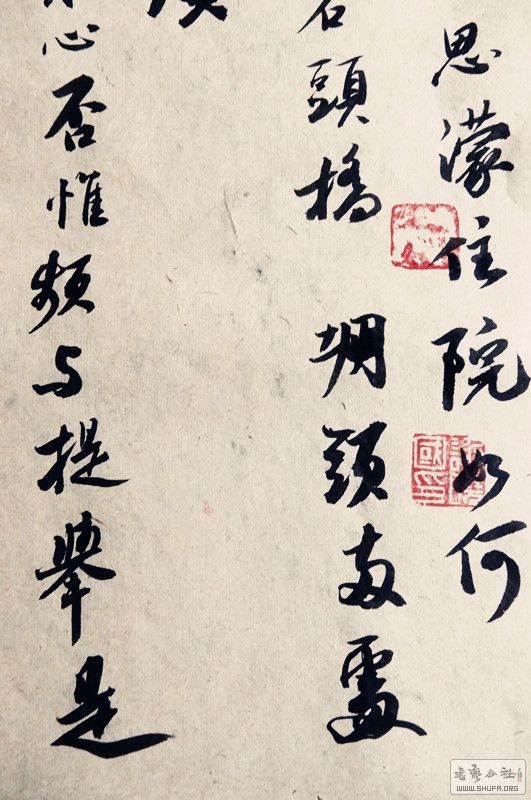 思濛住院如何
石頭橋 堋頭兩處
心否惟頻与提舉是
書藝公社
WWW.SHUFA.ORG